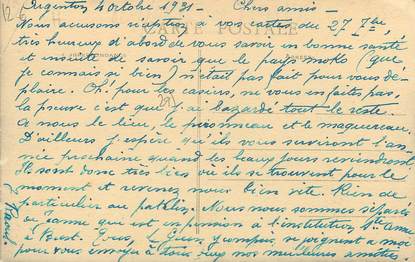 Argenton 4 octobre 1931 - Chers amis -
Nous accusons réception à vos cartes du 27 7bre,
CARTE POSTALE
très heureux d'abord de vous savoir en bonne santé
et ensuite de savoir que le pays moko (que
je connais si bien) n'était pas fait pour vous dé-
plaire. Oh! pour les casiers, ne vous en faites pas,
la preuve c'est que j'ai bazardé tout le reste.
A nous le lieu, le pironneau et le maquereau.
D'ailleurs j'espère qu'ils vous serviront l'an-
née prochaine quand les beaux jours reviendront.
Ils sont donc très bien où ils se trouvent pour le
moment et revenez nous bien vite. Rien de
particulier au patelin. Nous nous sommes séparés
de Jeanne qui est en pension à l'institution Ste Anne
à Brest. Tous, y compris, se joignent à moi
pour vous envoyer à tous deux nos meilleures amitiés.